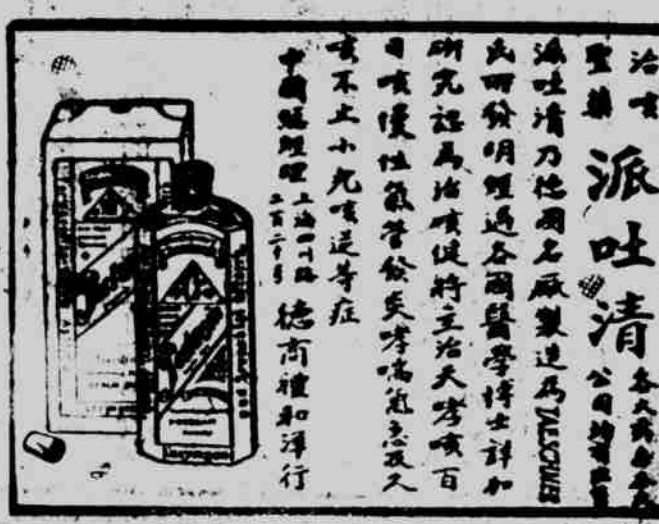 治咳
聖藥
派吐清
各大藥房
公司均有出售
派吐清乃德國名厰製造爲TALSCHNER
氏所發明經過各國醫學博士詳細
研究認爲治咳健將主治天哮咳百
日咳慢性氣管發炎哮喘氣急及久
咳不止小兒咳逆等症
中國總經理
上海四川路
二百二十号
德商禮和洋行